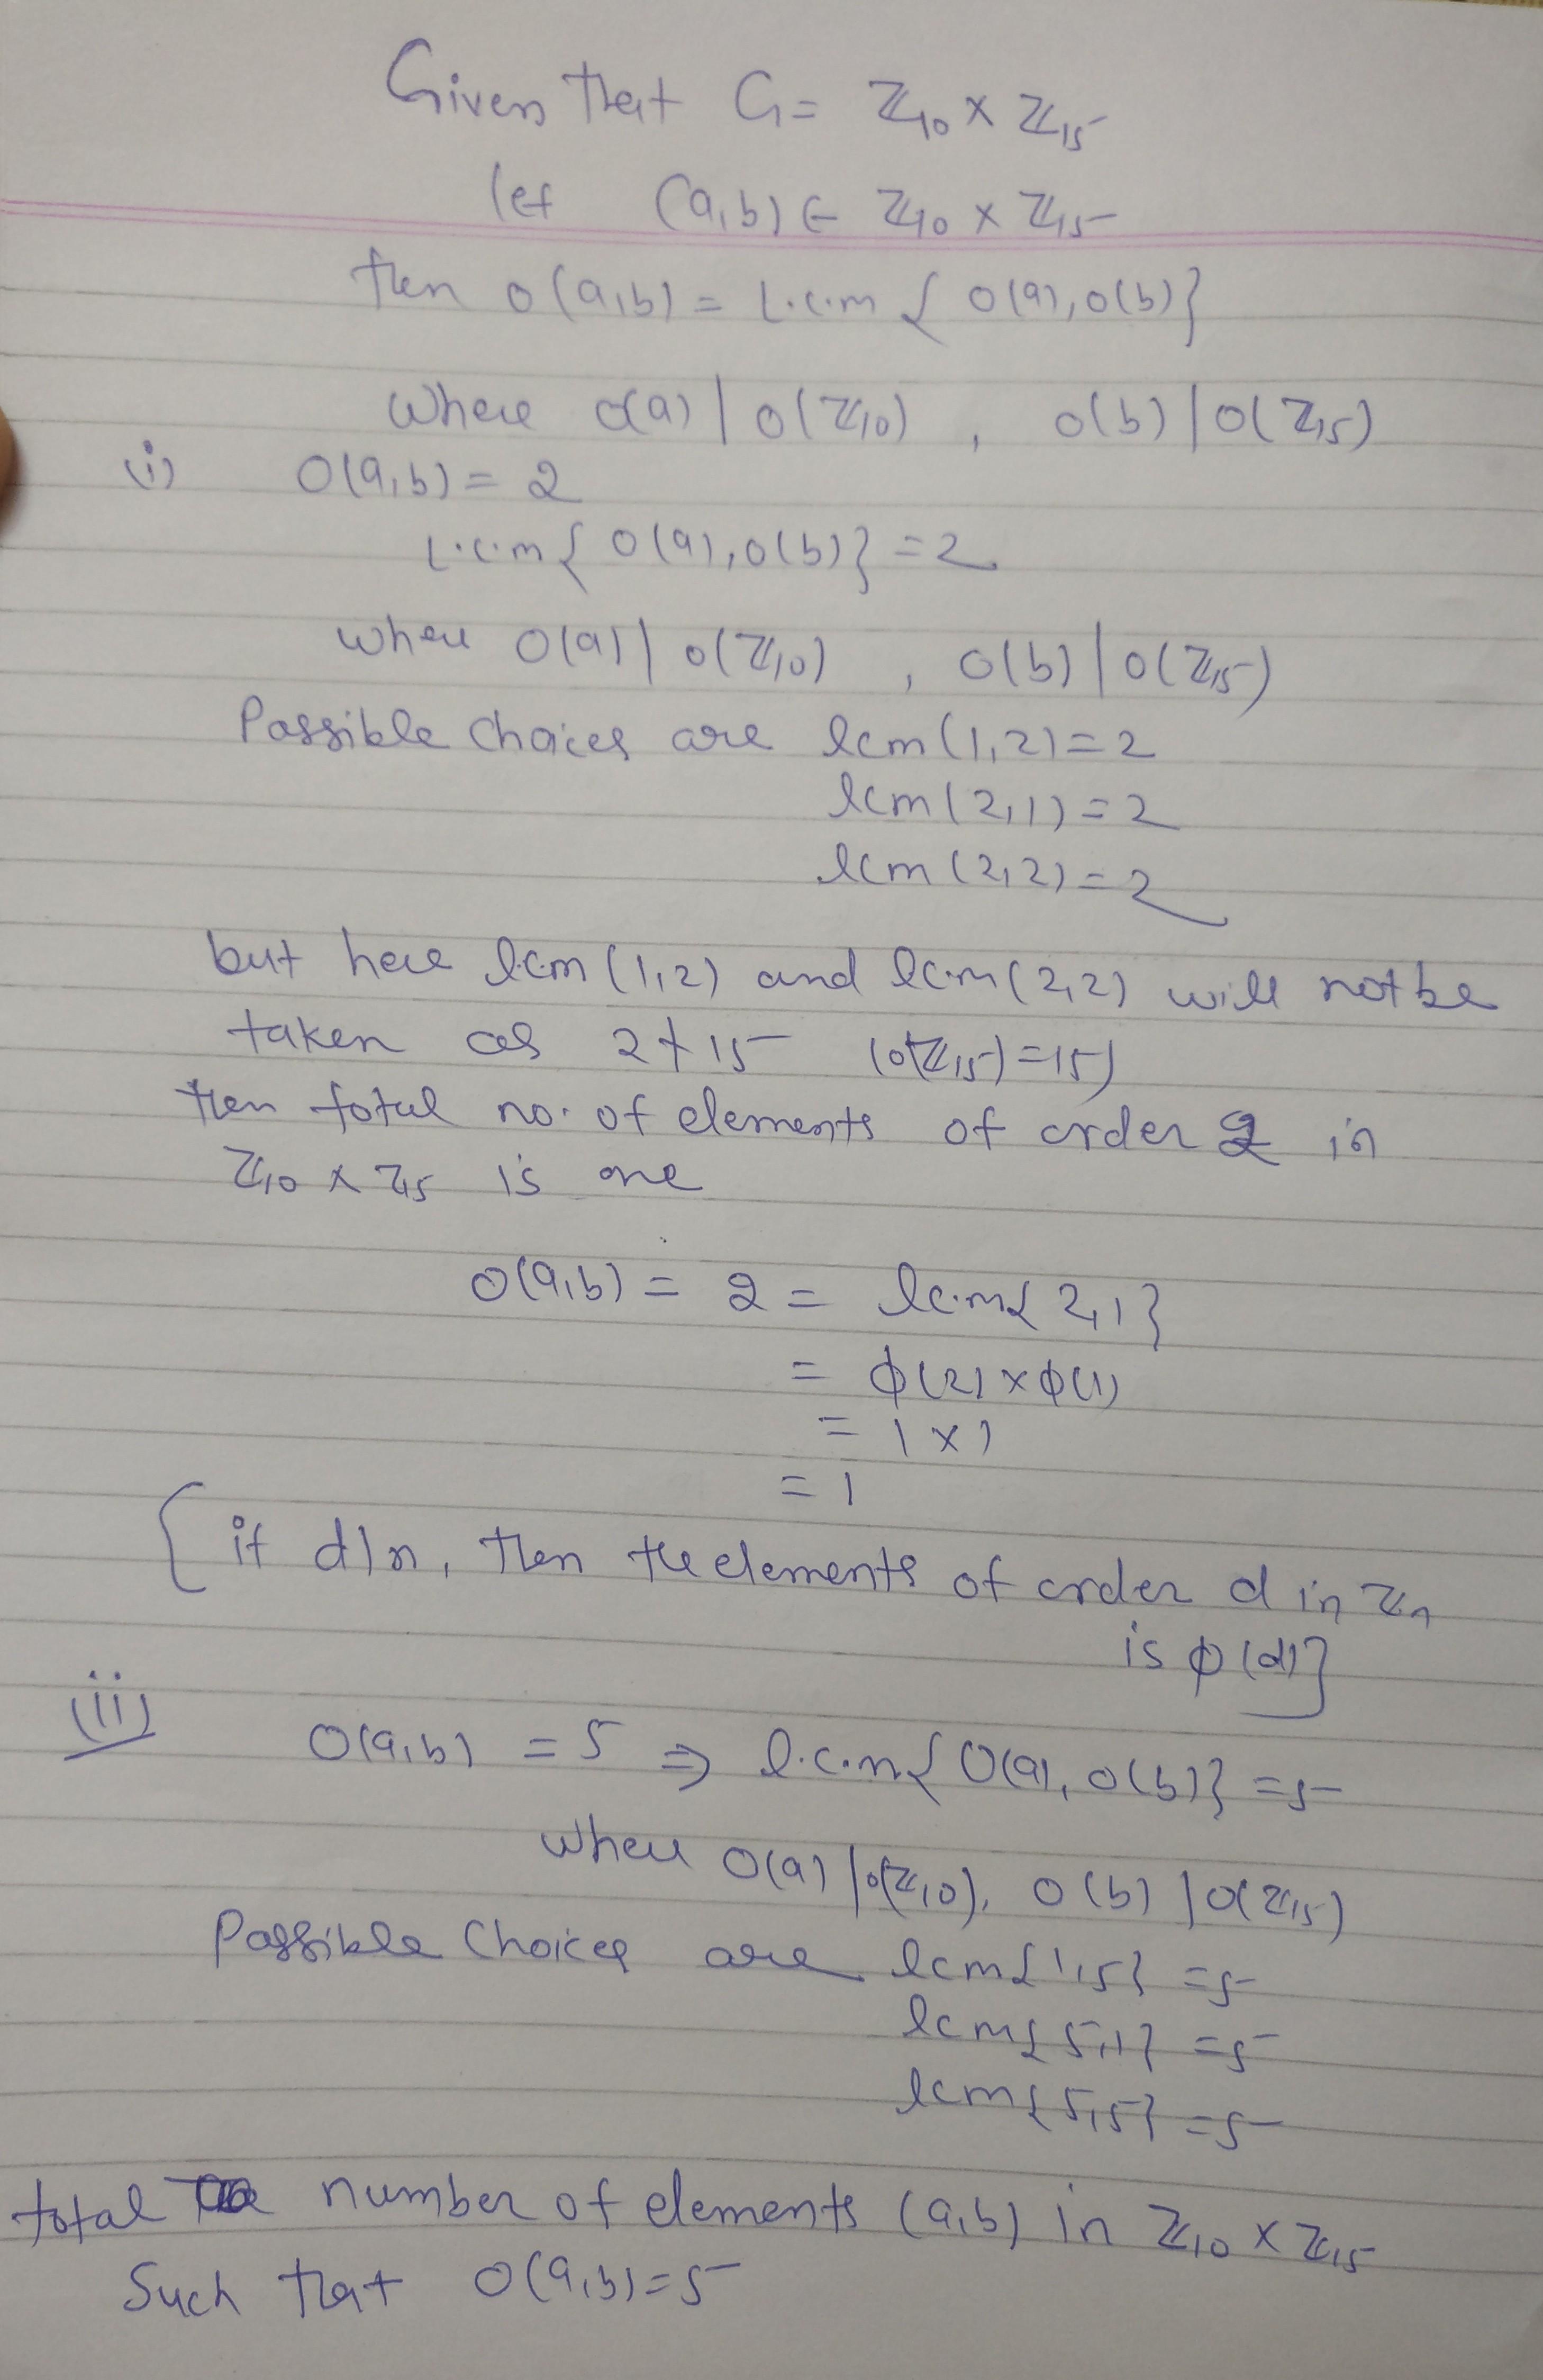 Given that G = ℤ10 × ℤ15
let (a,b) ∈ ℤ10 × ℤ15
then o(a,b) = L.c.m { o(a), o(b) }
Where o(a) | o(ℤ10) , o(b) | o(ℤ15)
(i) O(a,b) = 2
L.c.m { O(a), o(b) } = 2
where O(a) | o(ℤ10) , O(b) | o(ℤ15)
Possible Choices are lcm(1,2) = 2
lcm(2,1) = 2
lcm(2,2) = 2
but here l.c.m (1,2) and l.c.m (2,2) will not be
taken as 2 ∤ 15 (o(ℤ15) = 15)
then total no. of elements of order 2 in
ℤ10 × ℤ15 is one
O(a,b) = 2 = l.c.m { 2,1 }
= ϕ(2) × ϕ(1)
= 1 × 1
= 1
{ if d|n, then the elements of order d in ℤn
is ϕ(d) }
(ii) O(a,b) = 5 ⇒ l.c.m { O(a), o(b) } = 5
where O(a) | o(ℤ10), O(b) | o(ℤ15)
Possible Choices are lcm{1,5} = 5
lcm{5,1} = 5
lcm{5,5} = 5
total number of elements (a,b) in ℤ10 × ℤ15
Such that O(a,b) = 5